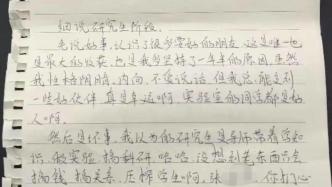 细说研究生阶段。
先说好事，认识了很多要好的朋友，这是唯一也
是最大的收获，也是我多坚持了一年半的原因，虽然
我性格阴暗、内向、不爱说话，但我总能遇到
一些好伙伴，真是幸运啊，实验室的同学都是好
人啊。
然后是坏事，我以为的研究生是导师带着学知
识、做实验、搞科研，哈哈，没想到老东西只会
搞钱、搞关系、压榨学生啊，张 你打心